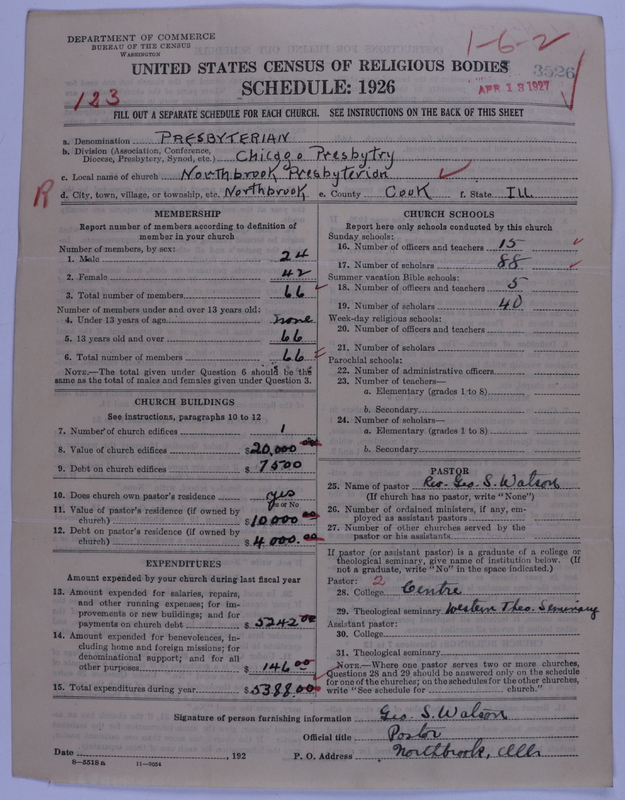 DEPARTMENT OF COMMERCE
BUREAU OF THE CENSUS
WASHINGTON
1-6-2
UNITED STATES CENSUS OF RELIGIOUS BODIES
3526
SCHEDULE: 1926
APR 13 1927
123
FILL OUT A SEPARATE SCHEDULE FOR EACH CHURCH. SEE INSTRUCTIONS ON THE BACK OF THIS SHEET
a. Denomination PRESBYTERIAN
b. Division (Association, Conference, Diocese, Presbytery, Synod, etc.) Chicago Presbytry
c. Local name of church Northbrook Presbyterian
R d. City, town, village, or township, etc. Northbrook e. County Cook f. State ILL
MEMBERSHIP
Report number of members according to definition of
member in your church
Number of members, by sex:
1. Male 24
2. Female 42
3. Total number of members 66
Number of members under and over 13 years old:
4. Under 13 years of age none
5. 13 years old and over 66
6. Total number of members 66
NOTE.—The total given under Question 6 should be the
same as the total of males and females given under Question 3.
CHURCH BUILDINGS
See instructions, paragraphs 10 to 12
7. Number of church edifices 1
8. Value of church edifices $20,000 00
9. Debt on church edifices $7500
10. Does church own pastor's residence yes
Yes or No
11. Value of pastor's residence (if owned by
church) $10000 00
12. Debt on pastor's residence (if owned by
church) $4000.00
EXPENDITURES
Amount expended by your church during last fiscal year
13. Amount expended for salaries, repairs,
and other running expenses; for im-
provements or new buildings; and for
payments on church debt $5242 00
14. Amount expended for benevolences, in-
cluding home and foreign missions; for
denominational support; and for all
other purposes $146 00
15. Total expenditures during year $5388.00
CHURCH SCHOOLS
Report here only schools conducted by this church
Sunday schools:
16. Number of officers and teachers 15
17. Number of scholars 88
Summer vacation Bible schools:
18. Number of officers and teachers 5
19. Number of scholars 40
Week-day religious schools:
20. Number of officers and teachers
21. Number of scholars
Parochial schools:
22. Number of administrative officers
23. Number of teachers—
a. Elementary (grades 1 to 8)
b. Secondary
24. Number of scholars—
a. Elementary (grades 1 to 8)
b. Secondary
PASTOR
25. Name of pastor Rev. Geo. S. Watson
(If church has no pastor, write "None")
26. Number of ordained ministers, if any, em-
ployed as assistant pastors
27. Number of other churches served by the
pastor or his assistants
If pastor (or assistant pastor) is a graduate of a college or
theological seminary, give name of institution below. (If
not a graduate, write "No" in the space indicated.)
Pastor: 2
28. College Centre
29. Theological seminary Western Theo. Seminary
Assistant pastor:
30. College
31. Theological seminary
NOTE.—Where one pastor serves two or more churches,
Questions 28 and 29 should be answered only on the schedule
for one of the churches; on the schedules for the other churches,
write "See schedule for church."
Signature of person furnishing information Geo. S. Watson
Official title Pastor
Date , 192 P. O. Address Northbrook, Ills
8—5518 a 11—9034